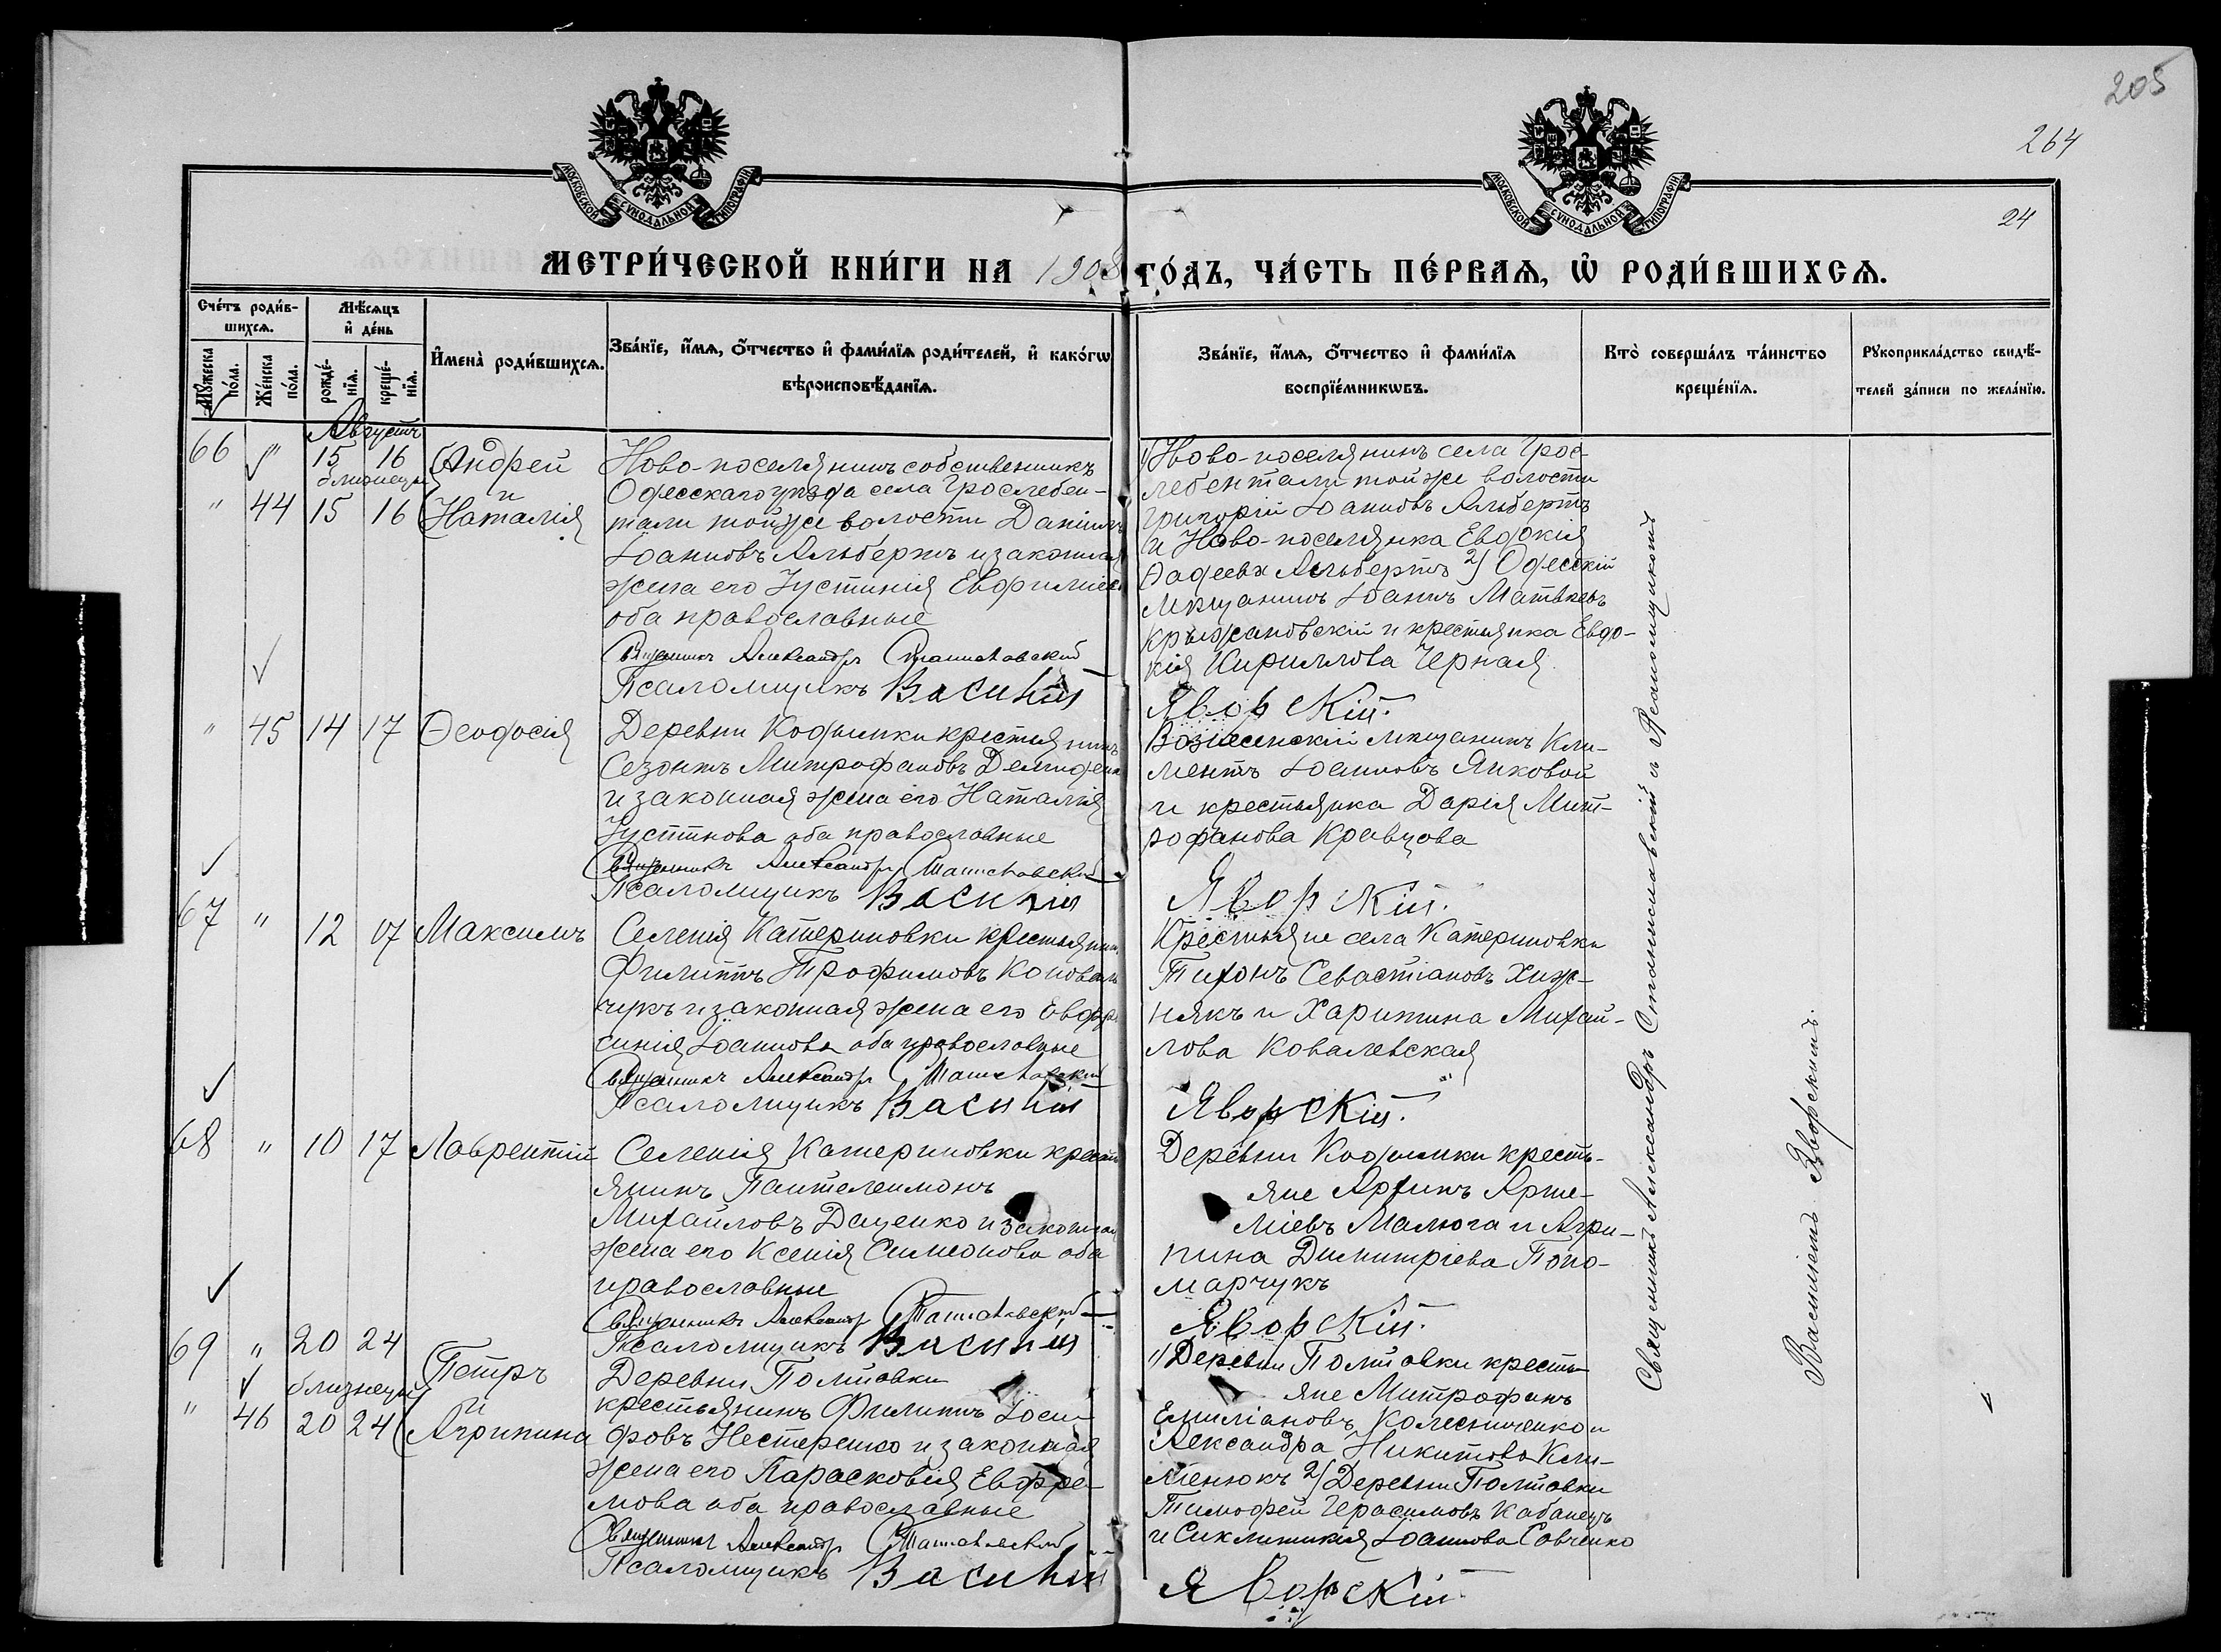 205
264
24
МОСКОВСКОЙ СУНОДАЛЬНОЙ ТИПОГРАФІИ
МОСКОВСКОЙ СУНОДАЛЬНОЙ ТИПОГРАФІИ
МЕТРИ́ЧЕСКОЙ КНИ́ГИ НА 1908 ГО́ДЪ, ЧА́СТЬ ПЕ́РВАѦ, Ѡ҆ РОДИ́ВШИХСѦ.
Сче́тъ роди́в-
шихсѧ.
Мꙋ́жеска по́ла.
Же́нска по́ла.
Мѣ́сѧцъ и҆ де́нь
рожде́-нїѧ.
креще́-нїѧ.
И҆мена̀ роди́вшихсѧ.
Зва́нїе, и҆́мѧ, ѻ҆́тчество и҆ фами́лїѧ роди́телей, и҆ како́гѡ
вѣроисповѣ́данїѧ.
Зва́нїе, и҆́мѧ, ѻ҆́тчество и҆ фами́лїѧ
воспрїе́мникѡвъ.
Кто̀ соверша́лъ та́инство
креще́нїѧ.
Рꙋкоприкла́дство свидѣ́-
телей за́писи по жела́нїю.
Августъ
66 " 15 16 Андрей
близнецы и
" 44 15 16 Наталія
Ново-поселянинъ собственникъ
Одесскаго уѣзда села Грослебен-
тали той же волости Даніилъ
Іоанновъ Альбертъ и законная
жена его Іустинія Евфиміева
оба православные
Священникъ Александръ Станиславскій
Псаломщикъ Василій
1) Ново-поселянинъ села Грос-
лебентали той же волости
Григорій Іоанновъ Альбертъ
и Ново-поселянка Евдокія
Фадеева Альбертъ 2) Одесскій
мѣщанинъ Іоаннъ Матвѣевъ
Крыжановскій и крестьянка Евдо-
кія Кириллова Черная
Яворскій.
" 45 14 17 Ѳеодосія
Деревни Кодымки крестьянинъ
Созонтъ Митрофановъ
и законная жена его Наталія
Іустинова оба православные
Священникъ Александръ Станиславскій
Псаломщикъ Василій
Вознесенскій мѣщанинъ Кли-
ментъ Іоанновъ Янковой
и крестьянка Дарія Мит-
рофанова Кравцова
Яворскій.
67 " 12 17 Максимъ
Селенія Катериновки крестьянинъ
Филиппъ Трофимовъ Коноваль
чукъ и законная жена его Евфро
синія Іоаннова оба православные
Священникъ Александръ Станиславскій
Псаломщикъ Василій
Крестьяне села Катериновки
Тихонъ Севастіановъ Хиж-
някъ и Харитина Михай-
лова Ковалевская
Яворскій.
68 " 10 17 Лаврентій
Селенія Катериновки кресть
янинъ Пантелеимонъ
Михайловъ Даценко и законная
жена его Ксенія Симеонова оба
православные
Священникъ Александръ Станиславскій
Псаломщикъ Василій
Деревни Кодымки кресть-
яне Архипъ Арте-
міевъ Малюга и Агри-
пина Димитріева Поно-
марчукъ
Яворскій.
69 " 20 24 Петръ
близнецы и
" 46 20 24 Агрипина
Деревни Полтовки
крестьянинъ Филиппъ Іоси-
фовъ Нестеренко и законная
жена его Парасковія Евфре-
мова оба православные
Священникъ Александръ Станиславскій
Псаломщикъ Василій
1) Деревни Полтовки кресть-
яне Митрофанъ
Емиліановъ Колесниченко и
Александра Никитова Кли-
менюкъ 2) Деревни Полтовки
Тимофей Герасимовъ Кабанецъ
и Синклитикія Іоаннова Савченко
Яворскій.
Священникъ Александръ Станиславскій съ Псаломщикомъ
Василіемъ Яворскимъ.